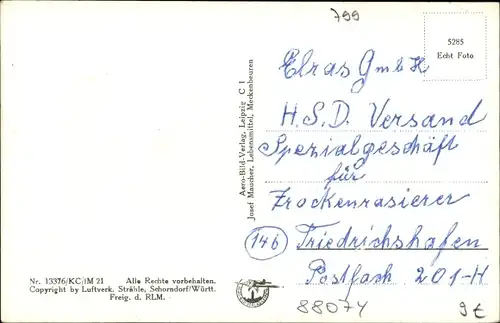 799
5285
Echt Foto
Elras GmbH
H.S.D. Versand
Spezialgeschäft
für
Trockenrasierer
(14b) Friedrichshafen
Postfach 201-H
Aero-Bild-Verlag, Leipzig C 1
Josef Maucher, Lebensmittel, Meckenbeuren
Nr. 13376/KC/1M 21 Alle Rechte vorbehalten.
Copyright by Luftverk. Strähle, Schorndorf/Württ.
Freig. d. RLM.
88074
9€